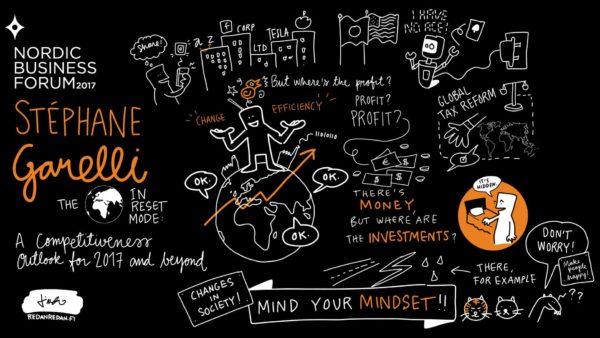 NORDIC
BUSINESS
FORUM2017
STÉPHANE
Garelli
THE
IN
RESET
MODE:
A Competitiveness
Outlook for 2017 and beyond
REDANREDAN.FI
Share!
a z
f CORP
LTD
TESLA
But where's the profit?
PROFIT?
PROFIT?
CHANGE
EFFICIENCY
OK.
OK.
OK.
I HAVE
NO AGE!
GLOBAL
TAX REFORM
€ $
€ $
THERE'S
MONEY
BUT WHERE ARE
THE INVESTMENTS?
IT'S
HIDDEN
CHANGES
IN
SOCIETY!
MIND YOUR MINDSET!!
THERE,
FOR EXAMPLE
DON'T
WORRY!
Make
people
happy!
??